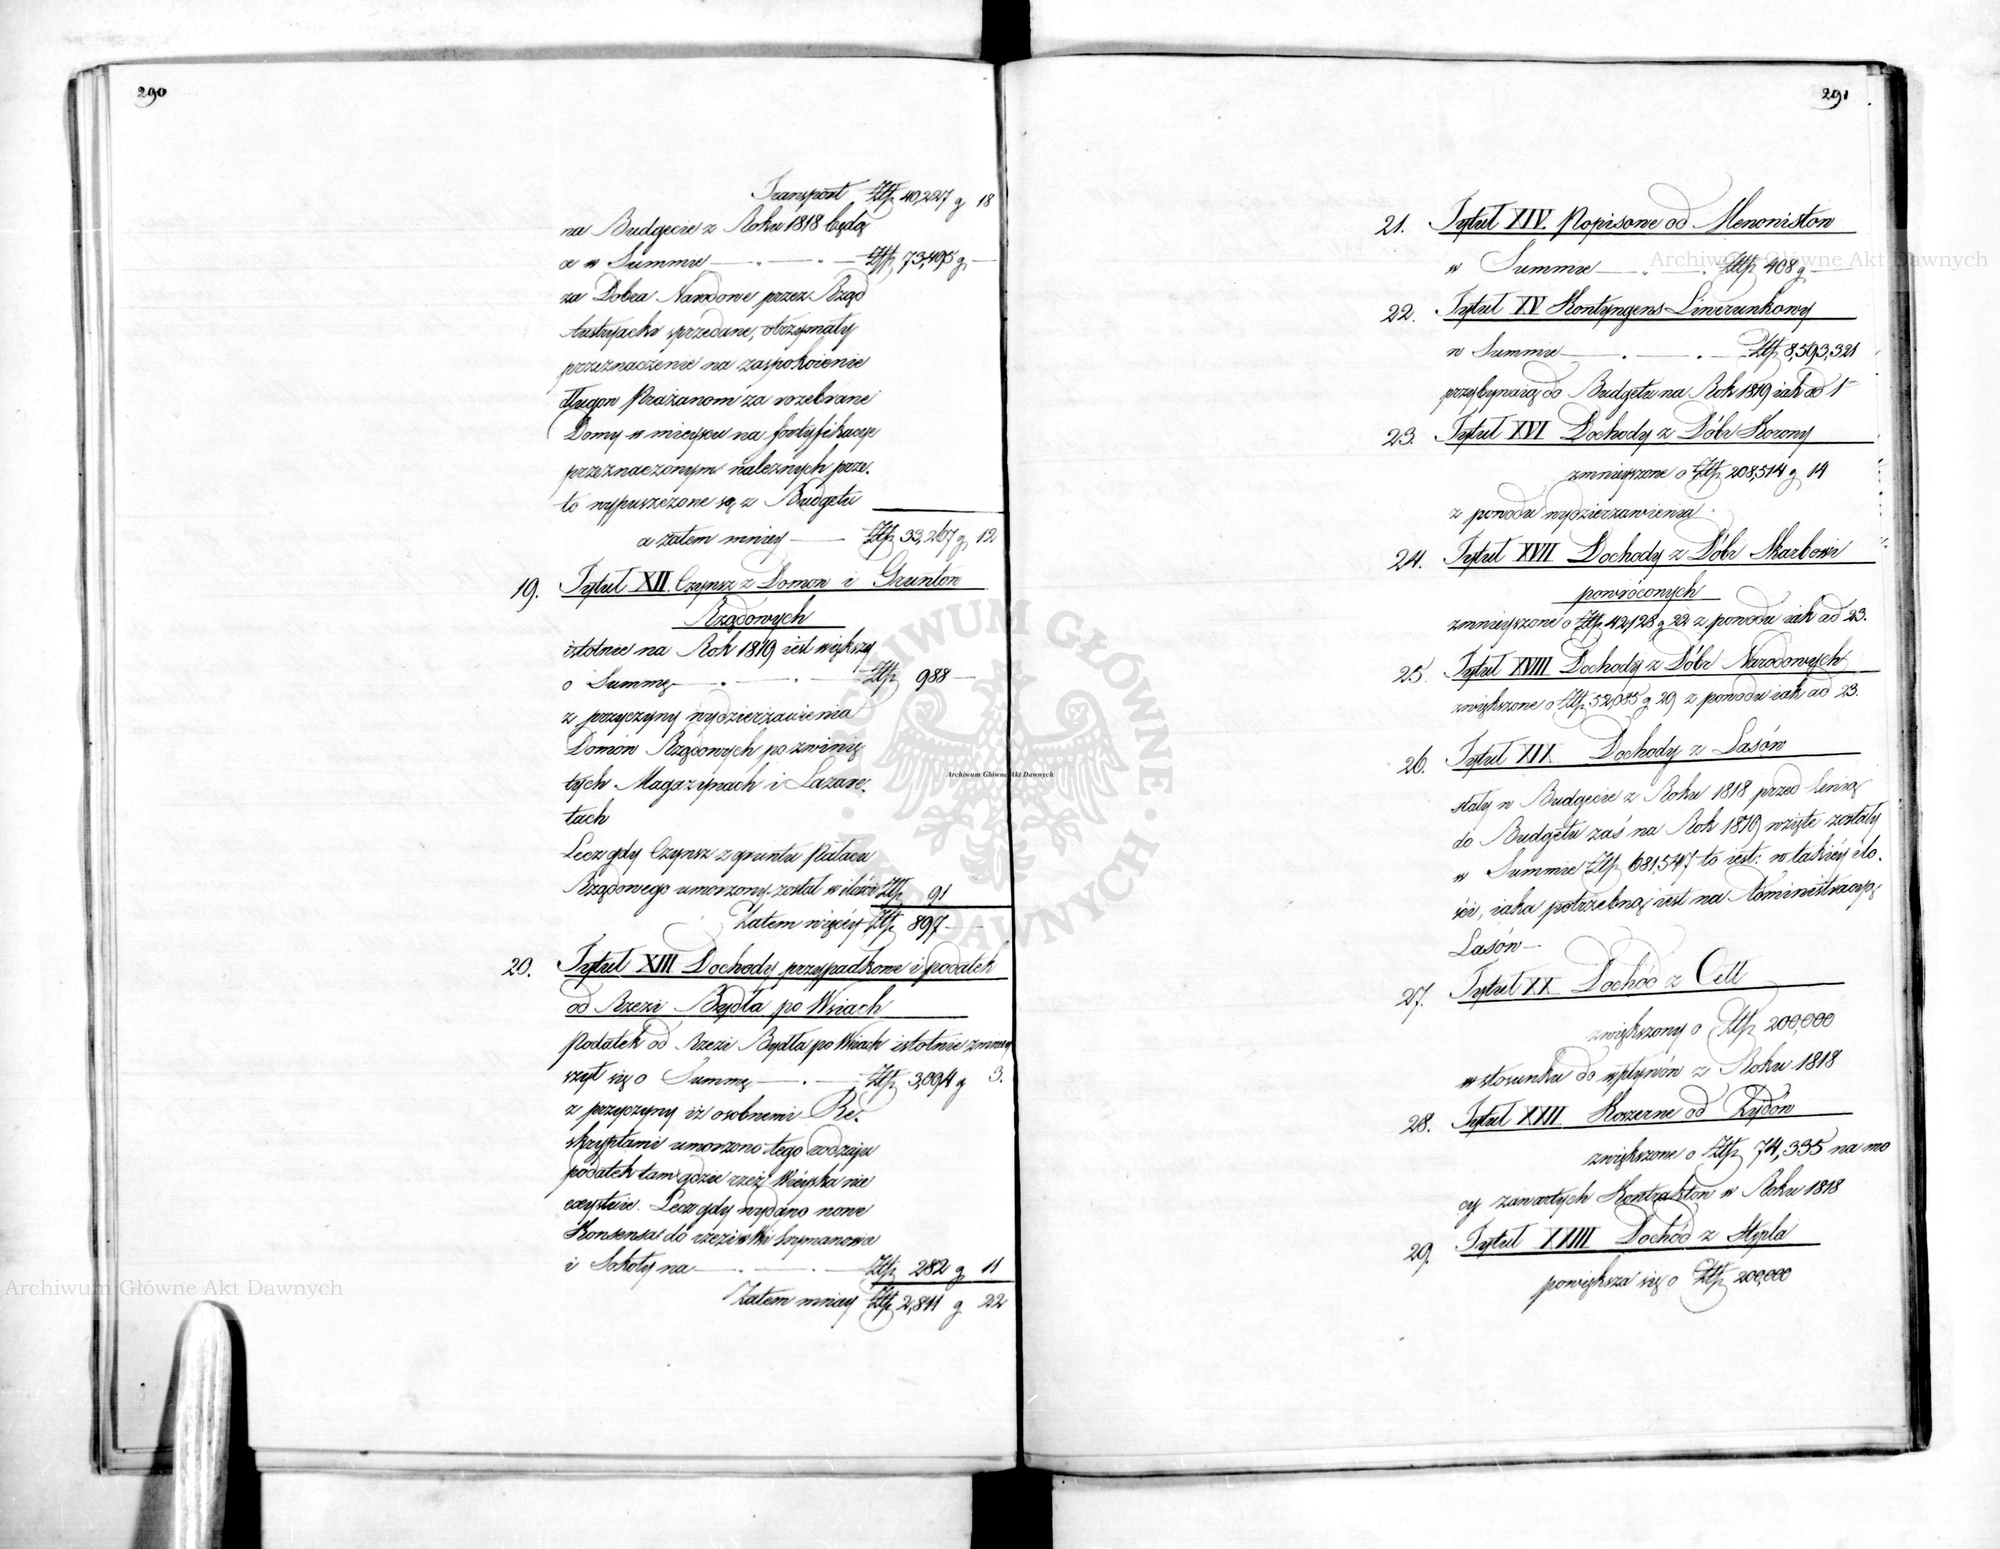 290
Transport Złp 40,227 g 18
na Budgecie z Roku 1818 będą
a w Summie — Złp 73,495 g —
za Dobra Narodowe przez Rząd
Austryacki sprzedane, otrzymały
przeznaczenie na zaspokoienie
długow Prażanom za rozebrane
Domy w mieyscu na fortyfikacye
przeznaczonym należnych prze-
to wypuszczone są z Budgetu
a zatem mniey — Złp 33,267 g 12
19. Tytuł XII. Czynsz z Domow i Gruntów
Rządowych
istotnie na Rok 1819 iest większy
o Summę — Złp 988 —
z przyczyny wydzierżawienia
Domów Rządowych po zwinię-
tych Magazynach i Lazare-
tach
Lecz gdy Czynsz z gruntu Pałacu
Rządowego umorzony został w ilości Złp 91
Zatem więcéy Złp 897 —
20. Tytuł XIII Dochody przypadkowe i podatek
od Rzezi Bydła po Wsiach
Podatek od Rzezi Bydła po Wsiach istotnie zmniey
szył się o Summę — Złp 3,094 g 3.
z przyczyny iż osobnemi Re-
skryptami umorzono tego rodzaju
podatek tam gdzie rzeź Wieyska nie
exystuie. Lecz gdy wydano nowe
Konsensa do rzezi w Wsi Szymanowie
i Sokoły na — Złp 282 g 11
Zatem mniey Złp 2,811 g 22
291
21. Tytuł XIV. Popisowe od Menonistow
w Summie — Złp 408 g —
22. Tytuł XV Kontyngens Liwerunkowy
w Summie — Złp 8,593,321
przybywaią do Budgetu na Rok 1819 iak ad 1
23. Tytuł XVI Dochody z Dóbr Korony
zmnieyszone o Złp 208,514 g 14
z powodu wydzierzawienia.
24. Tytuł XVII Dochody z Dóbr Skarbowi
powróconych
zmnieyszone o Złp 42,128 g 22 z powodu iak ad 23.
25. Tytuł XVIII Dochody z Dóbr Narodowych
zwiększone o Złp 52,085 g 29 z powodu iak ad 23.
26. Tytuł XIX Dochody z Lasów
stały w Budgecie z Roku 1818 przed linią
do Budgetu zaś na Rok 1819 wzięte zostały
w Summie Złp 681,547 to iest: w takiéy ilo-
ści, iaka potrzebną iest na Administracyą
Lasów —
27. Tytuł XX Dochód z Cell
zwiększony o Złp 200,000
w stosunku do wpływów z Roku 1818
28. Tytuł XXII Koszerne od Żydów
zwiększone o Złp 74,335 na mo
cy zawartych Kontraktow w Roku 1818
29. Tytuł XXIII Dochód z Stępla
powiększa się o Złp 200,000
Archiwum Główne Akt Dawnych
Archiwum Główne Akt Dawnych
Archiwum Główne Akt Dawnych
ARCHIWUM GŁÓWNE AKT DAWNYCH